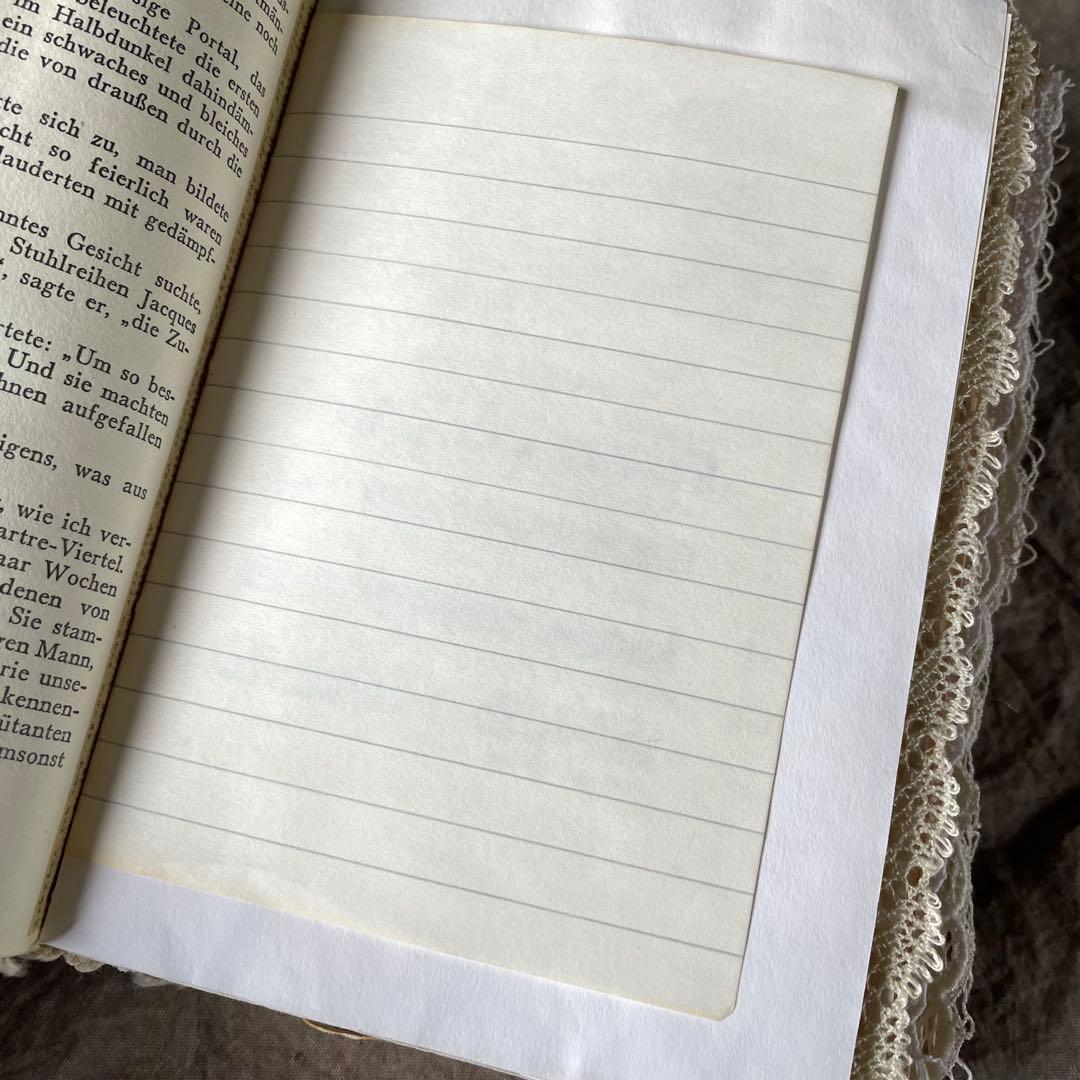 sige Portal, das
beleuchtete die ersten
im Halbdunkel dahindäm-
ein schwaches und bleiches
die von draußen durch die
sich zu, man bildete
so feierlich waren
mit gedämpf-
Gesicht suchte,
Stuhlreihen Jacques
sagte er, „die Zu-
„Um so bes-
Und sie machten
aufgefallen
was aus
wie ich ver-
artre-Viertel.
Wochen
denen von
Sie stam-
Mann,
unse-
kennen-